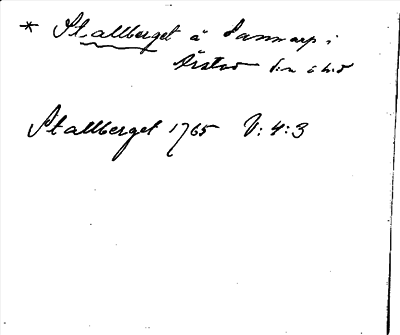 * Stallberget å Sannarp i
Årstad sn o hd
Stallberget 1765 V:4:3